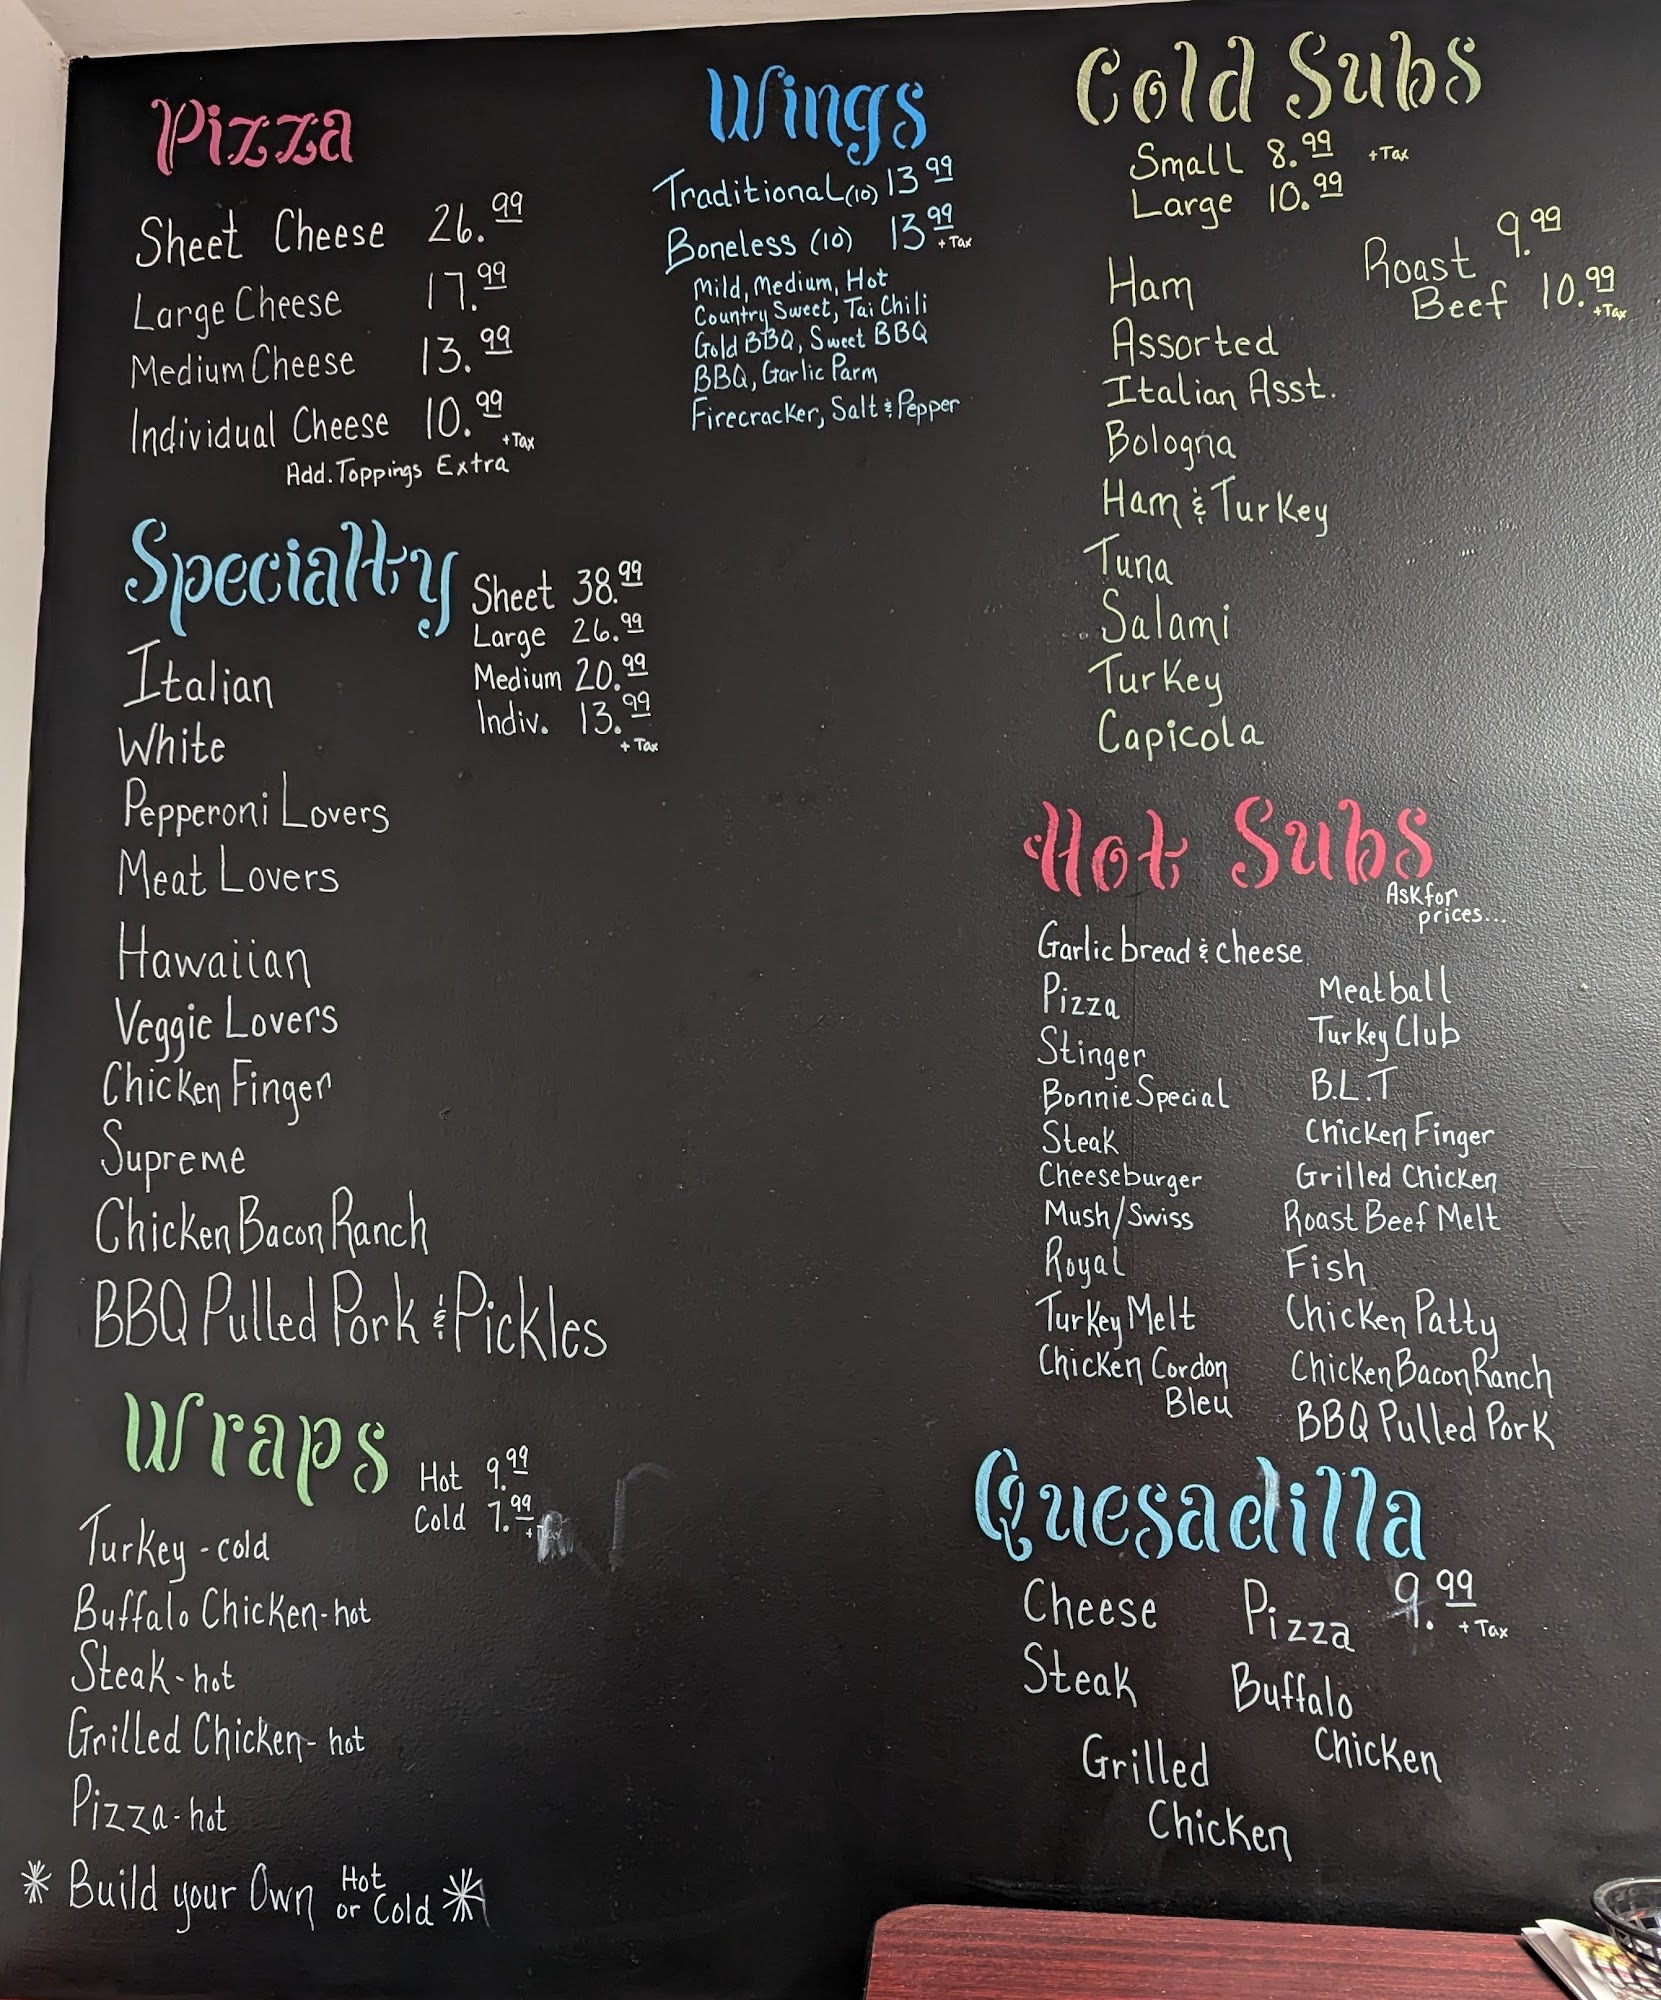 Pizza
Sheet Cheese 26.99
Large Cheese 17.99
Medium Cheese 13.99
Individual Cheese 10.99
+Tax
Add. Toppings Extra
Specialty
Sheet 38.99
Large 26.99
Medium 20.99
Indiv. 13.99
+ Tax
Italian
White
Pepperoni Lovers
Meat Lovers
Hawaiian
Veggie Lovers
Chicken Finger
Supreme
Chicken Bacon Ranch
BBQ Pulled Pork & Pickles
Wraps
Hot 9.99
Cold 7.99
+ Tax
Turkey - cold
Buffalo Chicken - hot
Steak - hot
Grilled Chicken - hot
Pizza - hot
* Build your Own Hot or Cold *
Wings
Traditional (10) 13.99
Boneless (10) 13.99
+ Tax
Mild, Medium, Hot
Country Sweet, Tai Chili
Gold BBQ, Sweet BBQ
BBQ, Garlic Parm
Firecracker, Salt & Pepper
Cold Subs
Small 8.99 +Tax
Large 10.99
Ham
Assorted
Italian Asst.
Bologna
Ham & Turkey
Tuna
Salami
Turkey
Capicola
Roast 9.99
Beef 10.99
+Tax
Hot Subs
Ask for
prices...
Garlic bread & cheese
Pizza
Stinger
Bonnie Special
Steak
Cheeseburger
Mush/Swiss
Royal
Turkey Melt
Chicken Cordon
Bleu
Meatball
Turkey Club
B.L.T
Chicken Finger
Grilled Chicken
Roast Beef Melt
Fish
Chicken Patty
Chicken Bacon Ranch
BBQ Pulled Pork
Quesadilla
9.99
+ Tax
Cheese
Steak
Grilled
Chicken
Pizza
Buffalo
Chicken